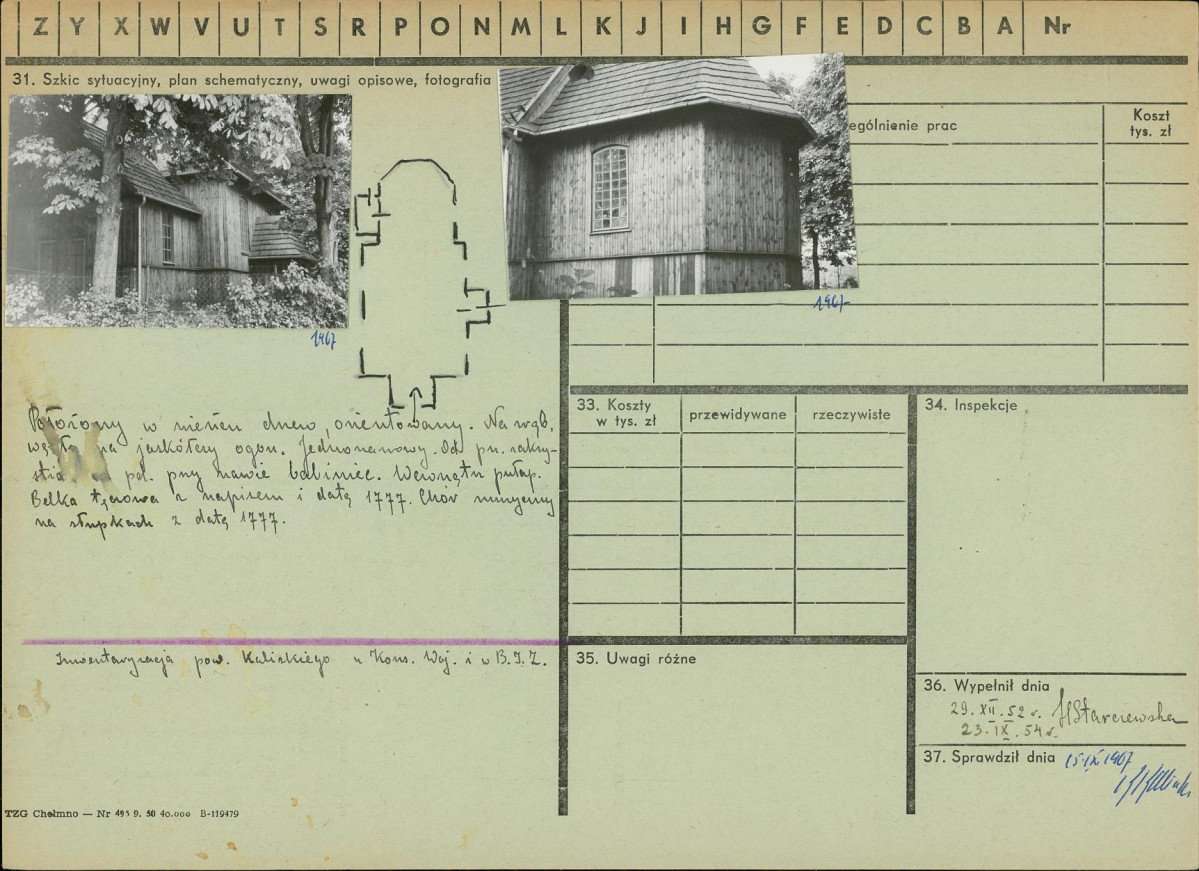 Z Y X W V U T S R P O N M L K J I H G F E D C B A Nr
31. Szkic sytuacyjny, plan schematyczny, uwagi opisowe, fotografia
ególnienie prac
Koszt
tys. zł
1967
1967
Położony w orientowany. Na zrąb,
na jaskółczy ogon. Jednonawowy. Od pn. zakry-
stia pd. przy nawie babiniec. Wewnątrz pułap.
Belka tęczowa z napisem i datą 1777. Chór muzyczny
na słupkach z datą 1777.
Inwentaryzacja pow. Kaliskiego u Kons. Woj. i w B.I.Z.
33. Koszty
w tys. zł
przewidywane
rzeczywiste
34. Inspekcje
35. Uwagi różne
36. Wypełnił dnia
29. XII. 52 r. HStarczewska
23. IX. 54 r.
37. Sprawdził dnia 15 IX 1967
TZG Chełmno — Nr 495 9. 50 40.000 B-119479